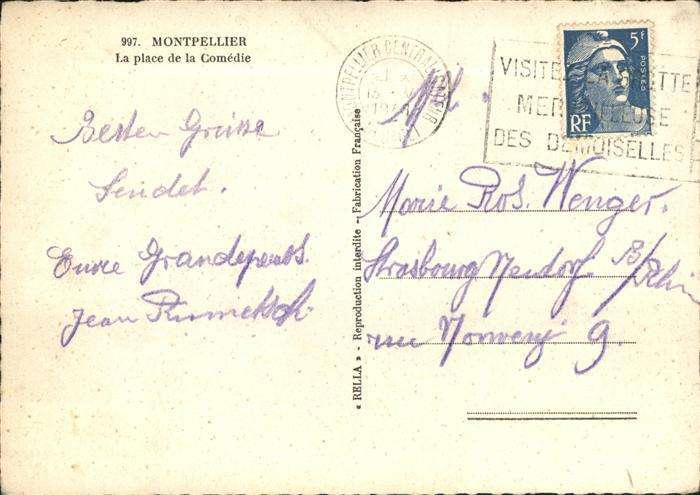 997. MONTPELLIER
La place de la Comédie
Besten Grüsse
Sendet.
Eure Grandeparents.
Jean
« RELLA » - Reproduction interdite - Fabrication Française
MONTPELLIER CENTRALISATEUR
VISITEZ LA GROTTE
MERVEILLEUSE
DES DEMOISELLES
5F
POSTES
RF
Marie Ros. Wenger.
Strasbourg Neudorf B/
rue 9.